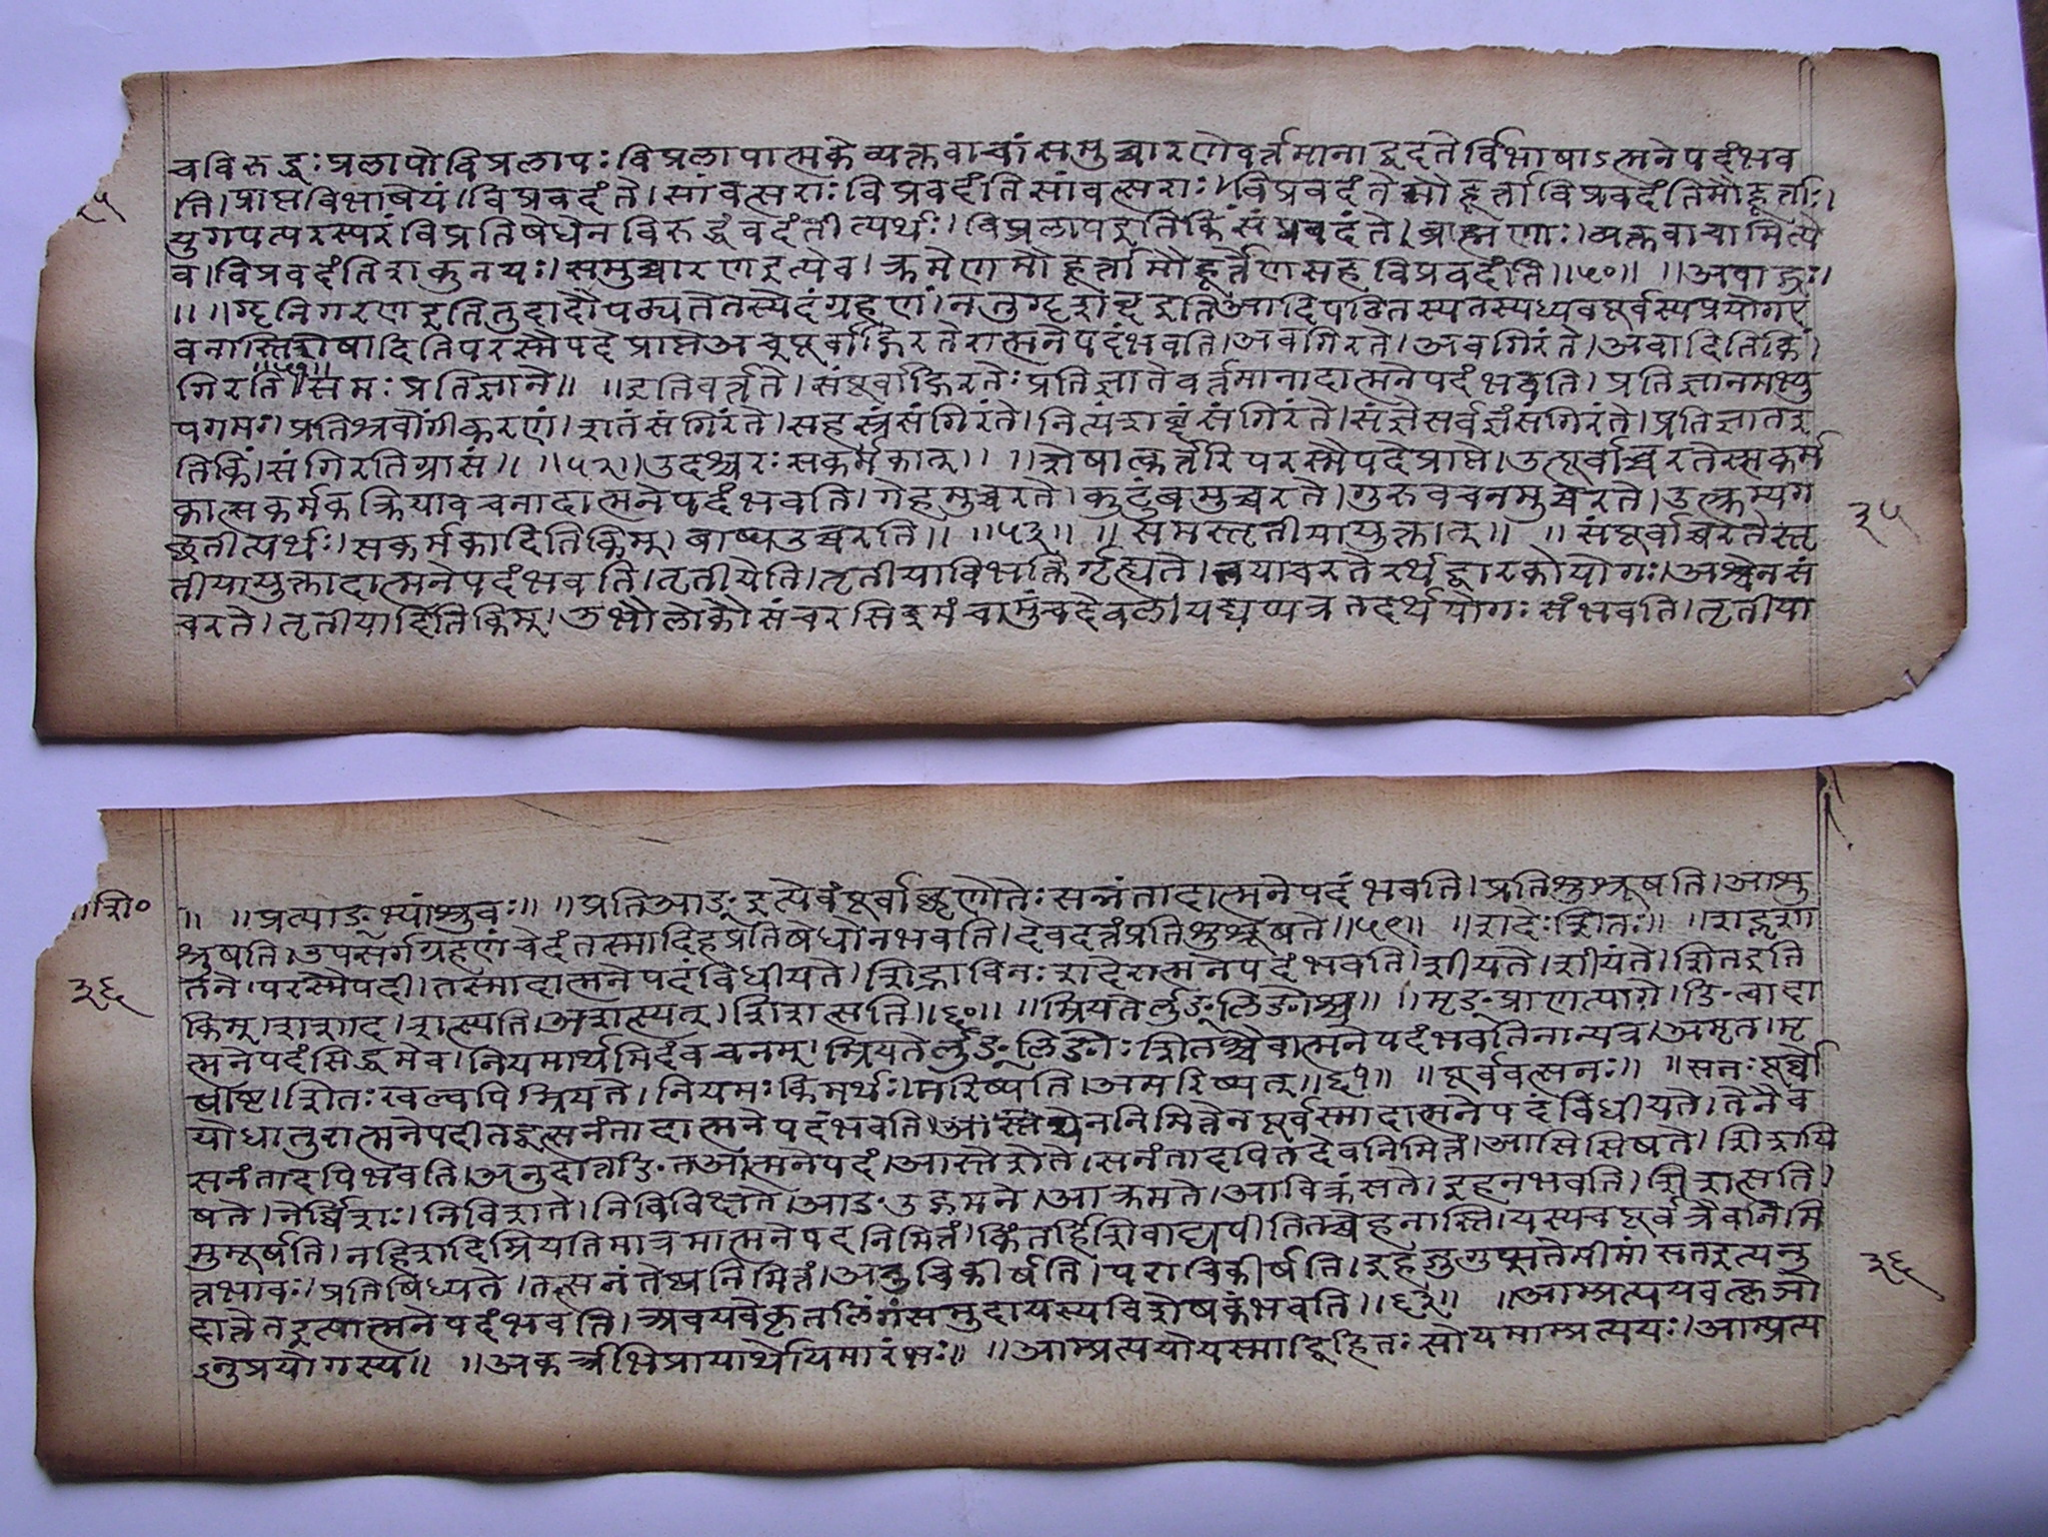 चविरुद्धः प्रलापो विप्रलापः विप्रलापात्मके व्यक्तवाचां समुच्चारणे वर्त्तमानाद्वदतेर्विभाषाऽत्मनेपदं भव
ति। प्राप्तविभाषेयं। विप्रवदंते। सांवत्सराः विप्रवदंति सांवत्सराः। विप्रवदंते मौहूर्ता विप्रवदंति मौहूर्ताः।
युगपत्परस्परं विप्रतिषेधेन विरुद्धं वदंतीत्यर्थः। विप्रलाप इति किं संप्रवदंते। ब्राह्मणाः। व्यक्तवाचामित्ये
व। विप्रवदंति शकुनयः। समुच्चारण इत्येव। क्रमेण मौहूर्ता मौहूर्तेण सह विप्रवदंति॥५०॥ ॥अवाद्ग्रः।
॥ ॥गॄ निगरण इति तुदादौ पठ्यते तस्येदं ग्रहणं। न तु गॄ शब्द इति क्र्यादिपठितस्य तस्यध्यवपूर्वस्य प्रयोग ए
व नास्ति शेषादिति परस्मैपदे प्राप्ते अवपूर्वाद्गिरतेरात्मनेपदं भवति। अवगिरते। अवगिरंते। अवादिति किं।
गिरति॥५१॥ समः प्रतिज्ञाने॥ ॥इति वर्त्तते। संपूर्वाद्गिरतेः प्रतिज्ञाते वर्त्तमानादात्मनेपदं भवति। प्रतिज्ञानमभ्यु
पगमः। प्रतिश्रवोंगीकरणं। शतं संगिरंते। सहस्रं संगिरंते। नित्यं शब्दं संगिरंते। संज्ञे सर्वज्ञं संगिरंते। प्रतिज्ञात इ
ति किं। संगिरति ग्रासं॥ ॥५२॥ उदश्चरः सकर्मकात्। ॥शेषात्कर्तरि परस्मैपदे प्राप्ते। उत्पूर्वाच्चरतेस्सकर्म
कात्सकर्मकक्रियावचनादात्मनेपदं भवति। गेहमुच्चरते। कुटुंबमुच्चरते। गुरुवचनमुच्चरते। उत्क्रम्य ग
छतीत्यर्थः। सकर्मकादिति किम्। बाष्प उच्चरति॥ ॥५३॥ ॥समस्तृतीयायुक्तात्॥ ॥संपूर्वाच्चरतेस्तृ
तीयायुक्तादात्मनेपदं भवति। तृतीयेति। तृतीयाविभक्तिर्गृह्यते। तया चरतेरर्थद्वारको योगः। अश्वेन सं
चरते। तृतीयादिति किम्। उभौ लोकौ संचरसि इमं चामुं च देवल। यद्यप्यत्र तदर्थयोगः संभवति। तृतीया
३५
॥शि०
३६
॥ ॥प्रत्याङ्भ्यां श्रुवः॥ ॥प्रति आङ् इत्येवं पूर्वाछृणोतेः सन्नंतादात्मनेपदं भवति। प्रतिशुश्रूषति। आशु
श्रूषति। उपसर्गग्रहणं चेदं तस्मादिह प्रतिषेधो न भवति। देवदत्तं प्रतिशुश्रूषते॥५९॥ ॥शदेः शितः॥ ॥शद्लृ शा
तने। परस्मैपदी। तस्मादात्मनेपदं विधीयते। शिद्भाविनः शदेरात्मनेपदं भवति। शीयते। शीयंते। शित इति
किम्। शशाद। शत्स्यति। अशत्स्यत्। शिशत्सति॥६०॥ ॥म्रियतेर्लुङ्लिङोश्च॥ ॥मृङ् प्राणत्यागे। ङित्वादा
त्मनेपदं सिद्धमेव। नियमार्थमिदं वचनम्। म्रियतेर्लुङ्लिङोः शितश्चैवात्मनेपदं भवति नान्यत्र। अमृत। मृ
षीष्ट। शितः खल्वपि म्रियते। नियमः किमर्थः। मरिष्यति। अमरिष्यत्॥६१॥ ॥पूर्ववत्सनः॥ ॥सनः पूर्वो
यो धातुरात्मनेपदी तद्वत्सनंतादात्मनेपदं भवति। येन निमित्तेन पूर्वस्मादात्मनेपदं विधीयते। तेनैव
सनंतादपि भवति। अनुदात्तङित आत्मनेपदं। आस्ते शेते। सनंतादपि तदेव निमित्तं। आसिसिषते। शिशयि
षते। नेर्विशः। निविशते। निविविक्षते। आङ उद्गमने। आक्रमते। आचिक्रंसते। इह न भवति। शिशत्सति।
मुमूर्षति। न हि शदिम्रियतिमात्रमात्मनेपदनिमित्तं। किं तर्हि शिदाद्यपीति तच्चेह नास्ति। यस्य च पूर्वत्रैव निमि
त्तभावः। प्रतिषिध्यते। तत्सनंतेष्वनिमित्तं। अनुचिकीर्षति। पराचिकीर्षति। इह जुगुप्सते मीमांसत इत्यनु
दात्तेत इत्यात्मनेपदं भवति। अवयवे कृत लिंगं समुदायस्य विशेषकं भवति॥६२॥ ॥आम्प्रत्ययवत्कृञो
ऽनुप्रयोगस्य॥ ॥अकर्त्रभिप्रायार्थोयमारंभः॥ ॥आम्प्रत्ययो यस्माद्विहितः सोयमाम्प्रत्ययः। आम्प्रत्य
३६